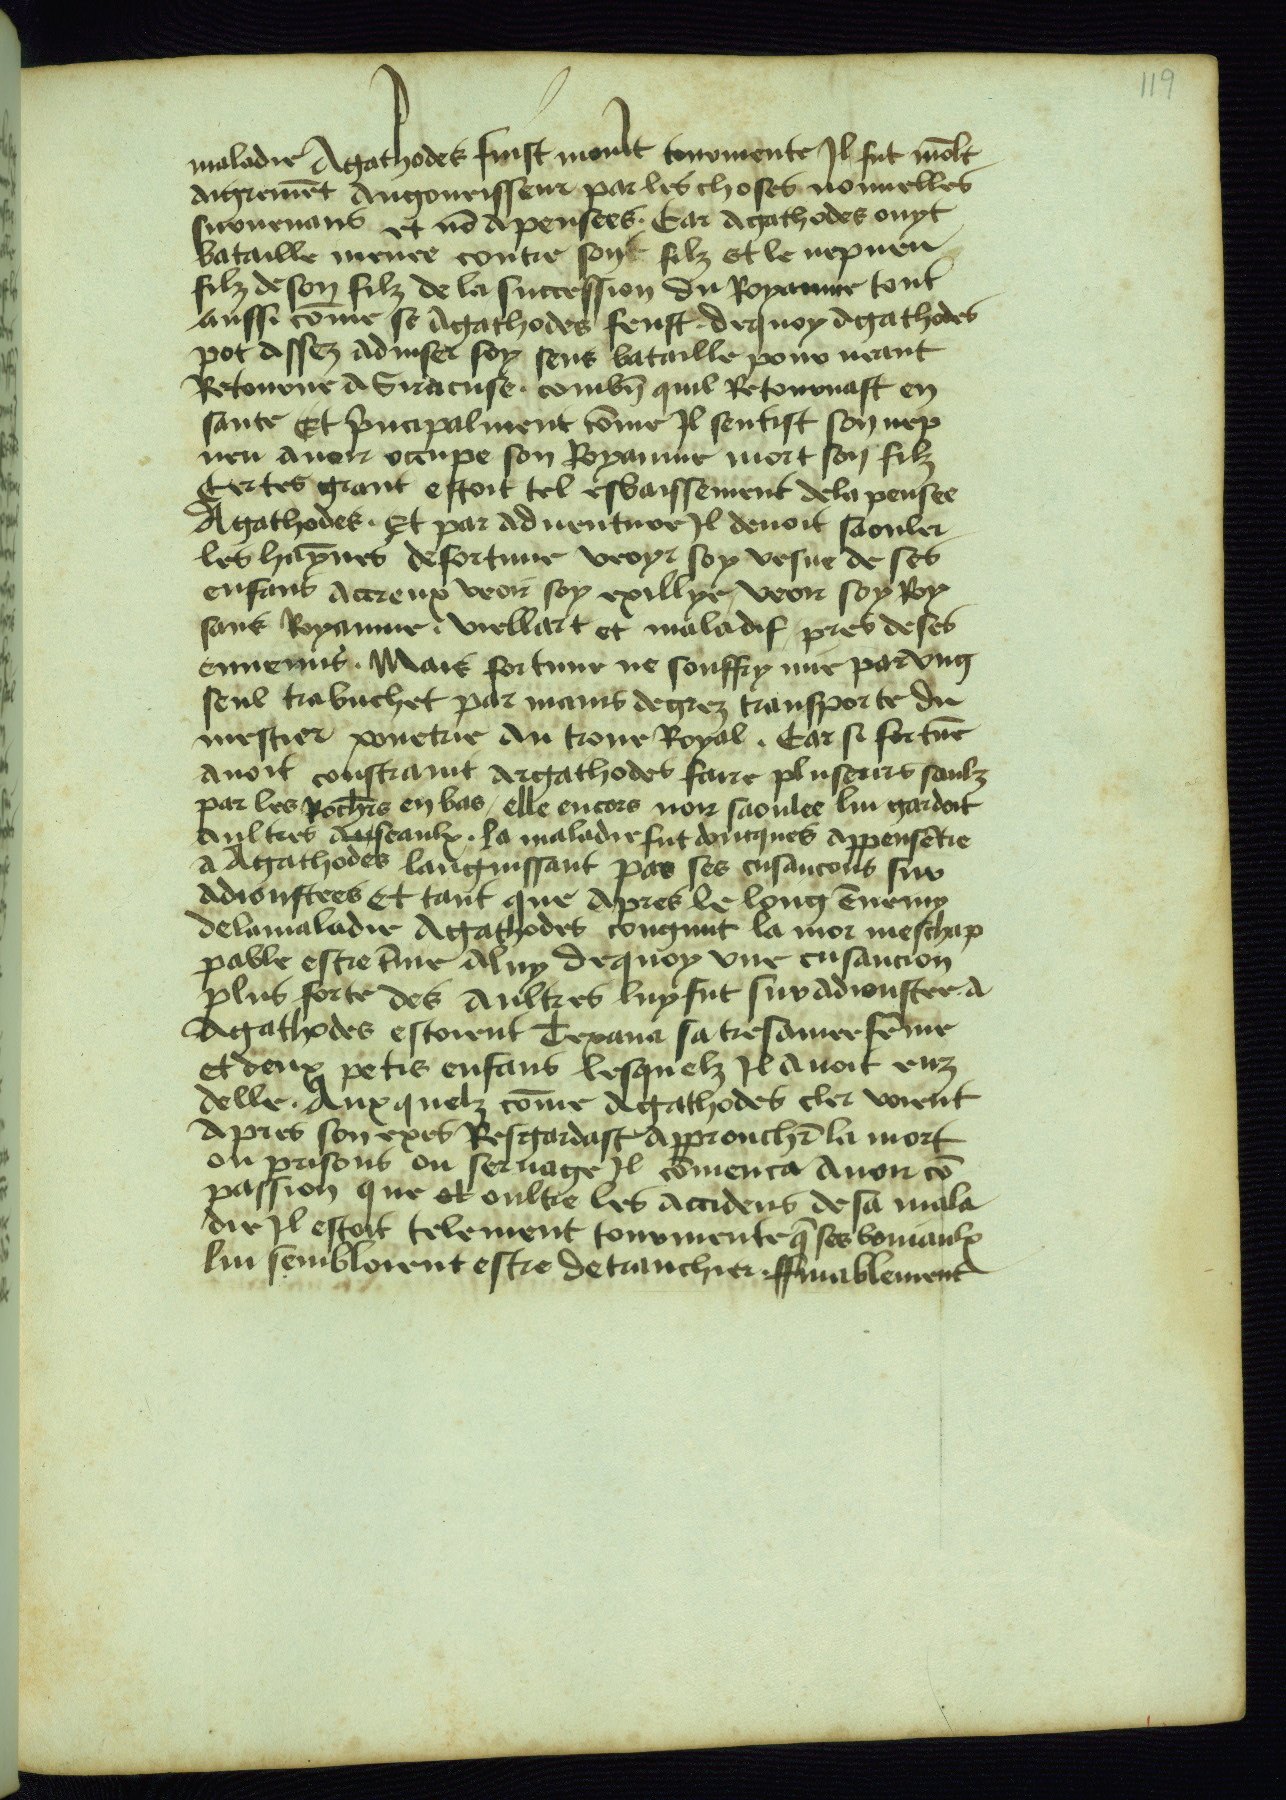 119
maladie Agathodes fuist moult tourmente Il fut mōlt
aigremēt Angouisseux par les choses nouuelles
suruenans et nō apensees. Car Agathodes ouyt
bataille menee contre son filz et le nepueu
filz de son filz de la succession du Royaume tout
aussi cōme se Agathodes feust. dequoy Agathodes
pot assez aduiser soy sens bataille pour neant
Retourne A Siracuse. combn̄ quil Retournast en
sante Et p̄ncipalment cōme Il sentist son nep
ueu auoir occupe son Royaume mort son filz
Certes grant estoit tel esbaissement dela pensee
Agathodes. Et par aduenture Il deuoit saouler
les hay̅nes defortune veoyr soy vesue de ses
enfans Accreux veoir soy exillye veoir soy Roy
sans Royaume. viellart et maladif pres deses
ennemis. Mais fortune ne souffry mie par vng
seul trabuchet par mains degrez transporte du
mestier pouetrie Au trone Royal. Car si fortūe
auoit constraint Argathodes faire pluseurs saulz
par les Roch̄rs en bas / elle encors non saoulee lui gardoit
Aultres Auseaulx. la maladie fut doncques Appensētie
a Agathodes languissant par ses cusancons sur
adioustees Et tant que Apres le long Ennemy
delamaladie Agathodes congnut la mor meschap
pable estre t̄me A luy Dequoy vne cusancion
plus forte des Aultres luy fut suradioustee. A
Agathodes estoient Texana sa tresamee fēme
et deux petis enfans lesquelz Il Auoit euz
delle. Auxquelz cōme Agathodes cler voient
Apres son exes Resgardast Approuchr̄ la mort
ou prisons ou seruage Il cōmenca Auoir cō
passion que et oultre les Accidens de sa mala
die Il estoit telement tourmente q̄ ses boiaulx
lui sembloient estre detranchier. ffinablement